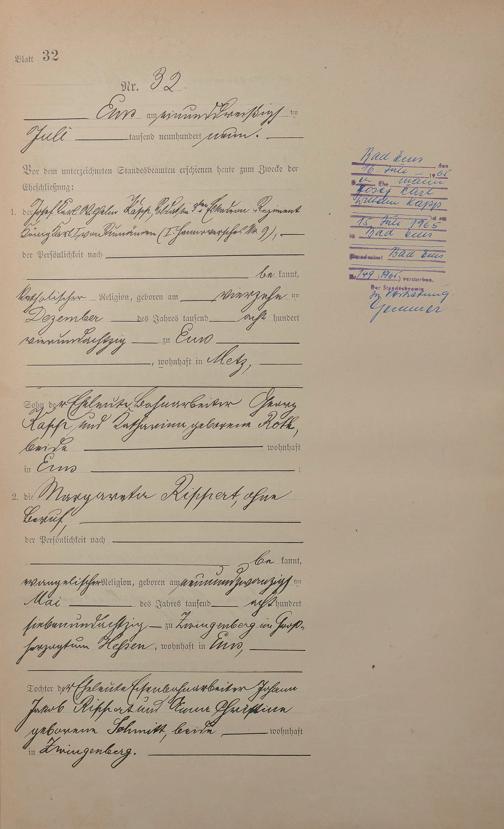 Blatt 32
Nr. 32
Ems am einunddreißigsten
Juli tausend neunhundert neun.
Vor dem unterzeichneten Standesbeamten erschienen heute zum Zwecke der
Eheschließung:
1. der Josef Karl Wilhelm Kapp, 3ten Eskadron Regiment
König Karl von Rumänien (1. Hannoversches № 9),
der Persönlichkeit nach
be kannt,
katholischer Religion, geboren am vierzehnten
Dezember des Jahres tausend acht hundert
vierundachtzig zu Ems
, wohnhaft in Metz,
Sohn der Eheleute Bahnarbeiter Georg
Kapp und Katharina geborene Roth,
beide wohnhaft
in Ems ;
2. die Margareta Rippert, ohne
Beruf,
der Persönlichkeit nach
be kannt,
evangelischer Religion, geboren am neunundzwanzigsten
Mai des Jahres tausend acht hundert
siebenundachtzig zu Zwingenberg im Groß-
herzogtum Hessen, wohnhaft in Ems,
Tochter der Eheleute Eisenbahnarbeiter Johann
Jakob Rippert und Christine
geborene Schmitt, beide wohnhaft
in Zwingenberg.
Bad Ems, den
16. Juli 1965
Ehemann
Josef Karl
Wilhelm Kapp
15. Juli 1965
in Bad Ems
Standesamt Bad Ems
Nr. 149/1965 verstorben.
Der Standesbeamte
In Vertretung